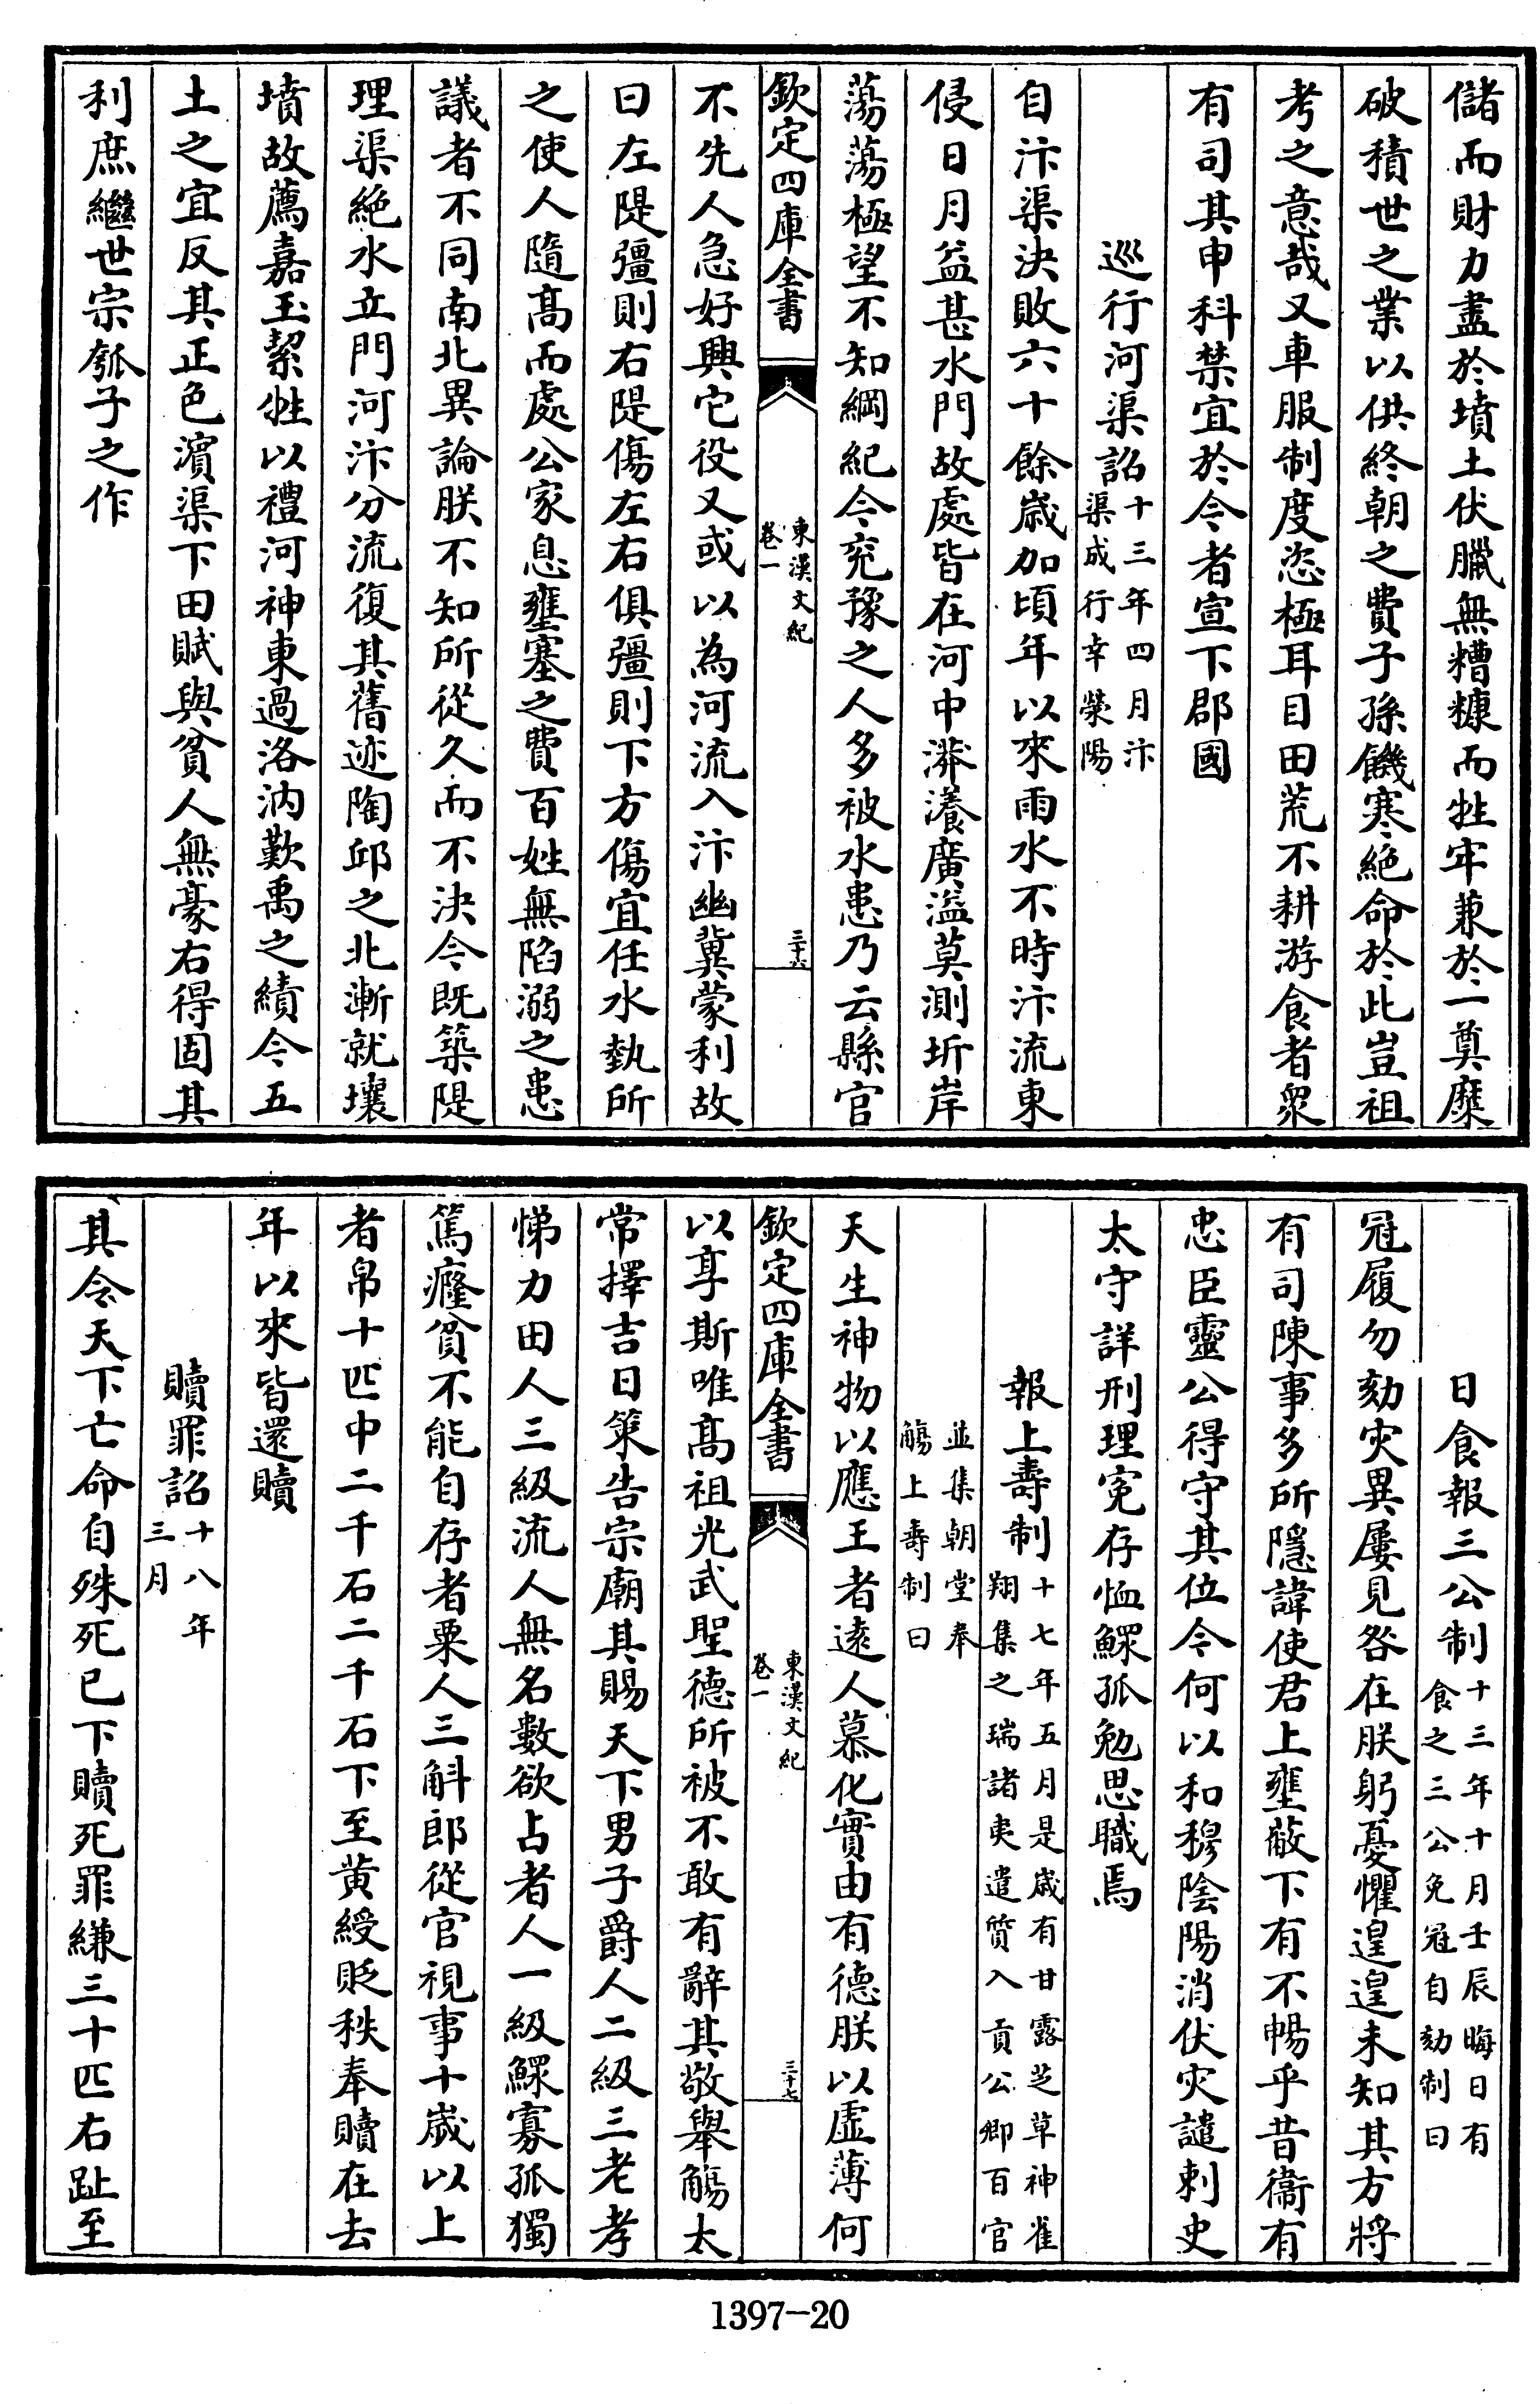 儲而財力盡於墳土伏臘無糟糠而牲牢兼於一奠糜
破積世之業以供終朝之費子孫饑寒絶命於此豈祖
考之意哉又車服制度恣極耳目田荒不耕游食者衆
有司其申科禁宜於今者宣下郡國
巡行河渠詔十三年四月汴
渠成行幸滎陽
自汴渠決敗六十餘歳加頃年以來雨水不時汴流東
侵日月益甚水門故處皆在河中漭瀁廣溢莫測圻岸
蕩蕩極望不知綱紀今兖豫之人多被水患乃云縣官
欽定四庫全書
東漢文紀
卷一
三十六
不先人急好興它役又或以為河流入汴幽冀蒙利故
曰左隄彊則右隄傷左右俱彊則下方傷宜任水埶所
之使人隨髙而處公家息壅塞之費百姓無陷溺之患
議者不同南北異論朕不知所從久而不決今既築隄
理渠絶水立門河汴分流復其舊迹陶邱之北漸就壤
墳故薦嘉玉絜牲以禮河神東過洛汭歎禹之績今五
土之宜反其正色濵渠下田賦與貧人無豪右得固其
利庶繼世宗瓠子之作
日食報三公制十三年十月壬辰晦日有
食之三公免冠自劾制曰
冠履勿劾灾異屢見咎在朕躬憂懼遑遑未知其方將
有司陳事多所隱諱使君上壅蔽下有不暢乎昔衞有
忠臣靈公得守其位今何以和穆隂陽消伏灾譴刺史
太守詳刑理寃存恤鰥孤勉思職焉
報上壽制十七年五月是歳有甘露芝草神雀
翔集之瑞諸夷遣質入貢公卿百官
並集朝堂奉
觴上壽制曰
天生神物以應王者逺人慕化實由有德朕以虚薄何
欽定四庫全書
東漢文紀
卷一
三十七
以享斯唯髙祖光武聖德所被不敢有辭其敬舉觴太
常擇吉日策告宗廟其賜天下男子爵人二級三老孝
悌力田人三級流人無名數欲占者人一級鰥寡孤獨
篤癃貧不能自存者粟人三斛郎從官視事十歳以上
者帛十匹中二千石二千石下至黄綬貶秩奉贖在去
年以來皆還贖
贖罪詔十八年
三月
其令天下亡命自殊死已下贖死罪縑三十匹右趾至
1397-20